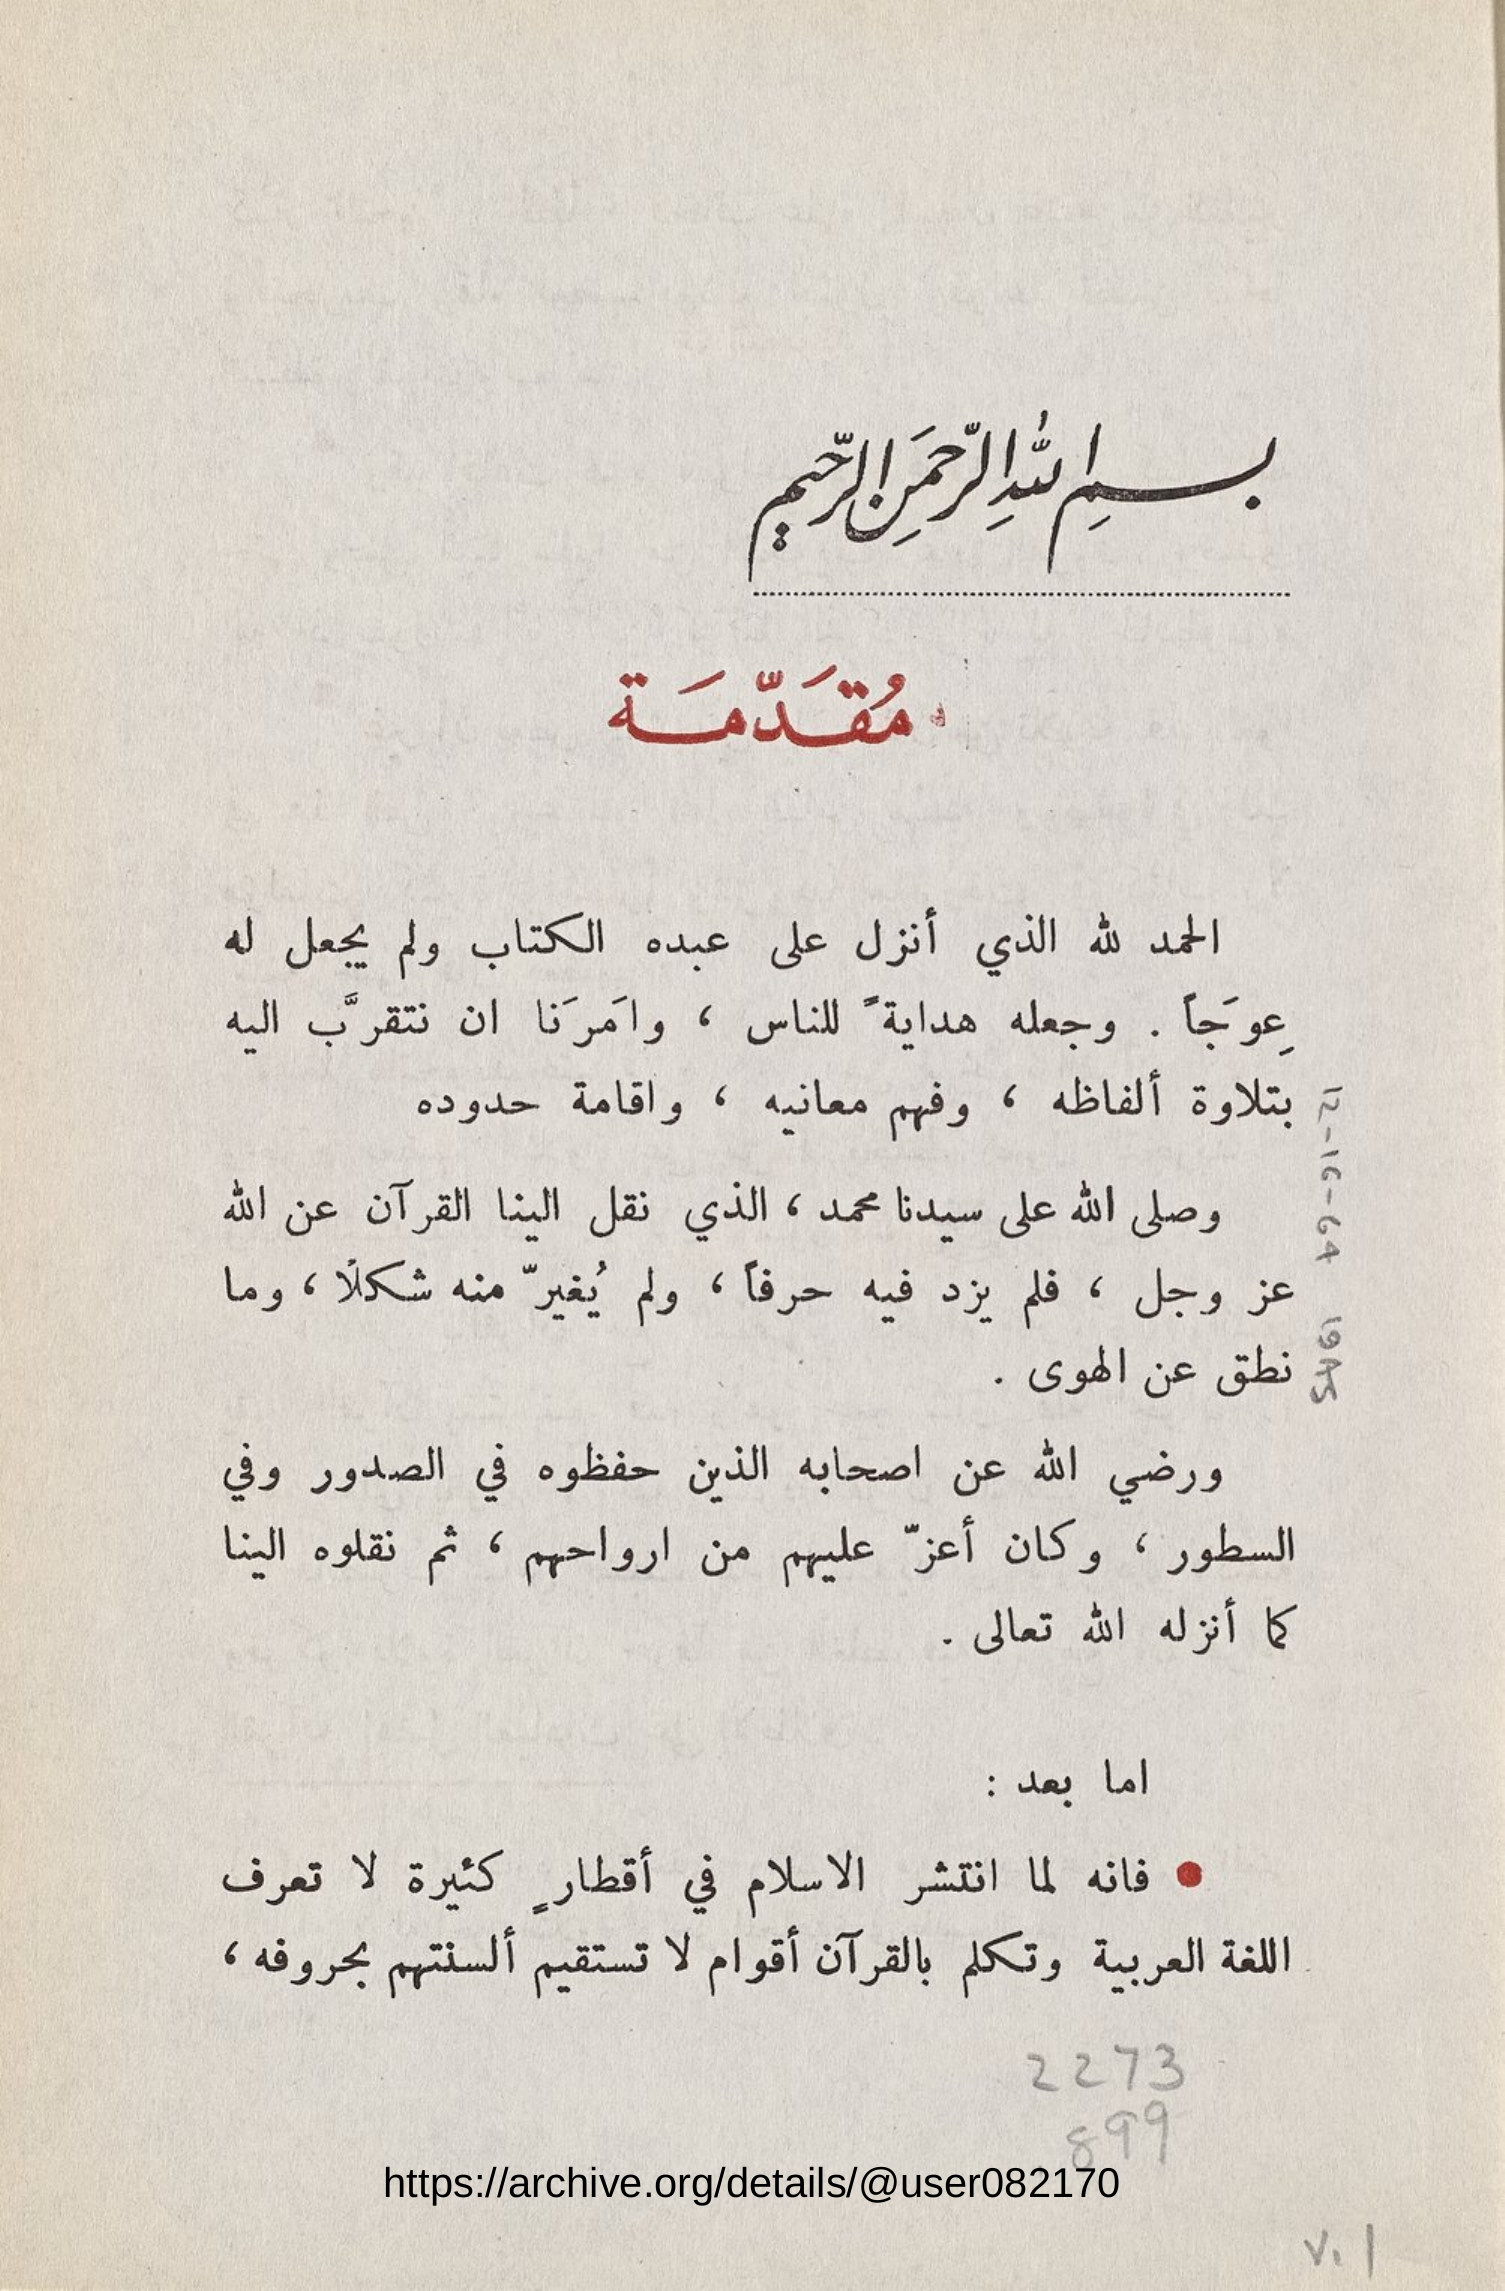 بسم الله الرحمن الرحيم
مُقَدّمَة
الحمد لله الذي أنزل على عبده الكتاب ولم يجعل له
عِوَجاً . وجعله هدايةً للناس ، وامَرَنا ان نتقرَّب اليه
بتلاوة ألفاظه ، وفهم معانيه ، واقامة حدوده
وصلى الله على سيدنا محمد ، الذي نقل الينا القرآن عن الله
عز وجل ، فلم يزد فيه حرفاً ، ولم يُغيّر منه شكلًا ، وما
نطق عن الهوى .
ورضي الله عن اصحابه الذين حفظوه في الصدور وفي
السطور ، وكان أعزّ عليهم من ارواحهم ، ثم نقلوه الينا
كما أنزله الله تعالى .
اما بعد :
● فانه لما انتشر الاسلام في أقطارٍ كثيرة لا تعرف
اللغة العربية وتكلم بالقرآن أقوام لا تستقيم ألسنتهم بحروفه ،
2273
.899
https://archive.org/details/@user082170
V.1